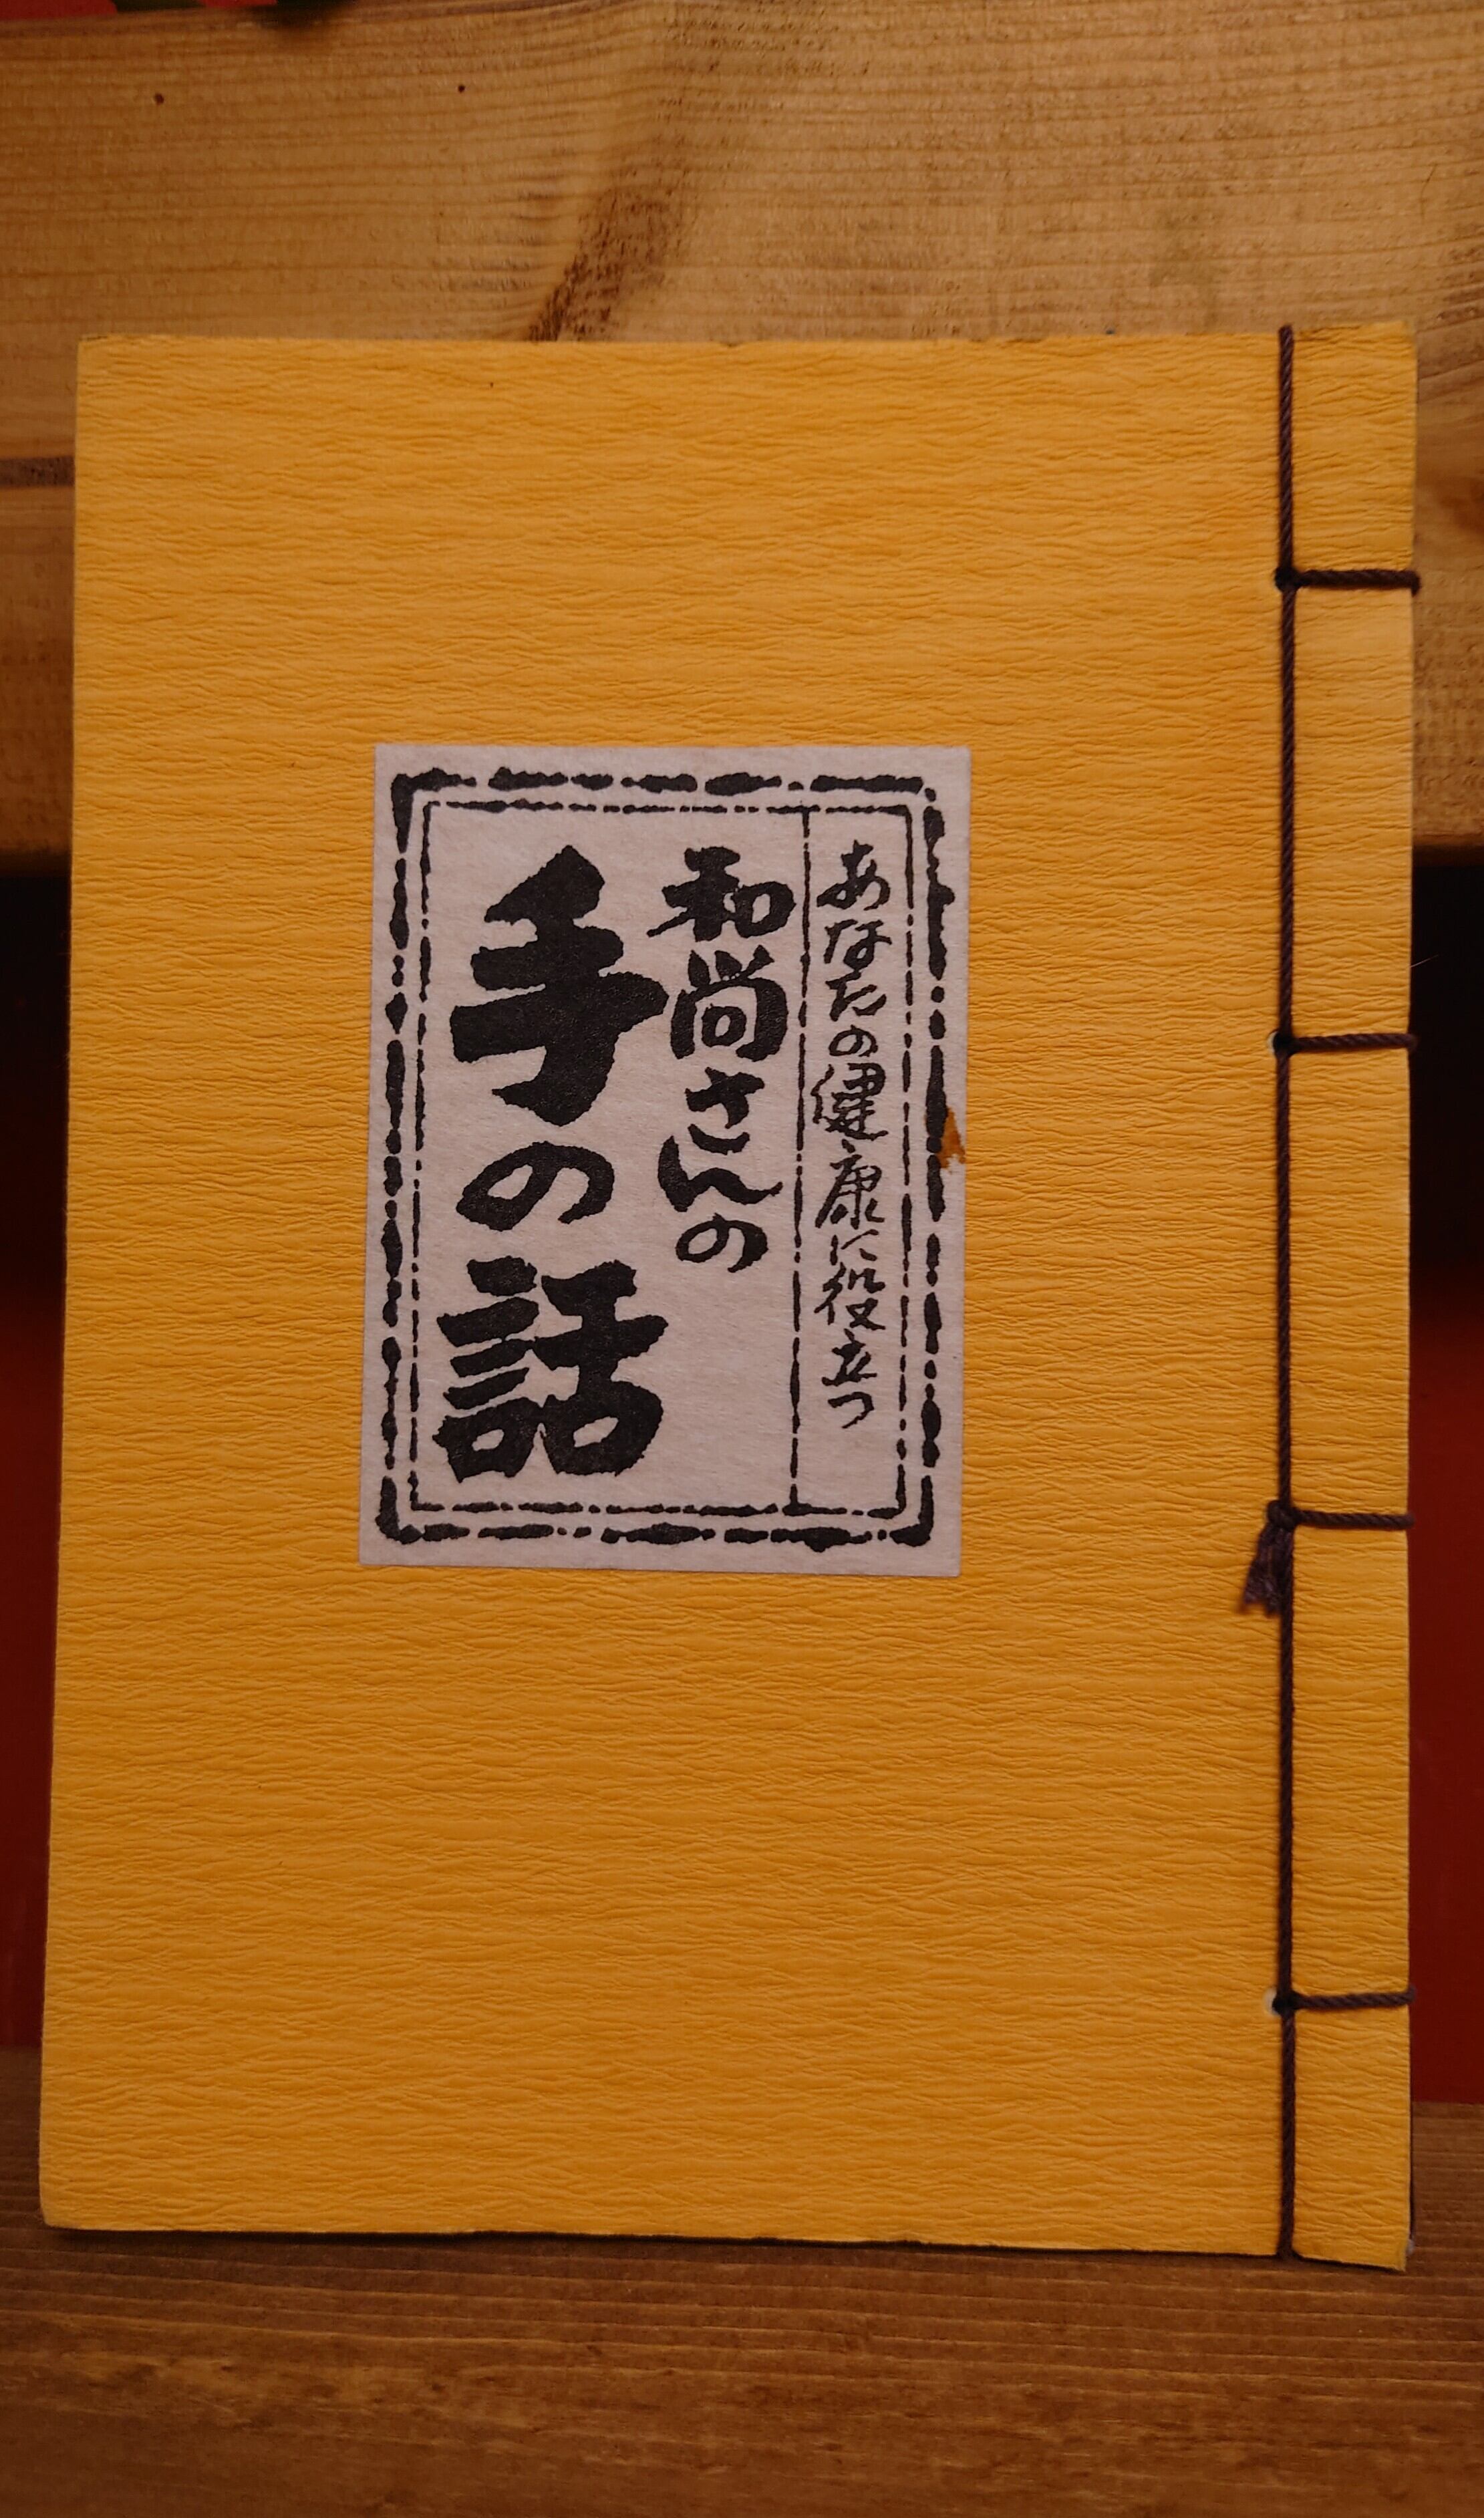 あなたの健康に役立つ
和尚さんの
手の話